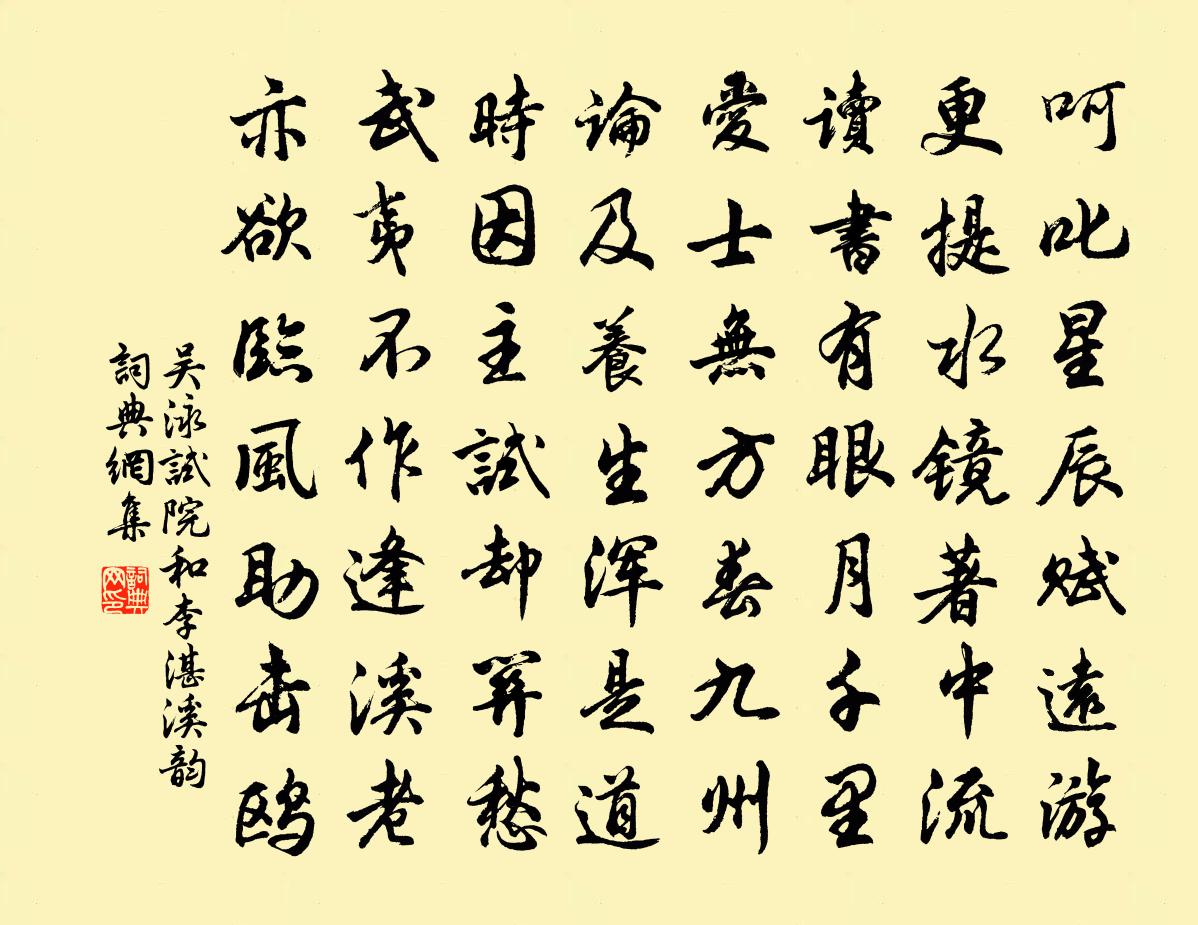 呵叱星辰赋遠游
更提水镜著中流
讀書有眼月千里
愛士無方春九州
論及養生浑是道
時因主試却愁
武夷不作逢溪老
亦欲臨風助击鸥
吴泳試院和李湛溪韵
詞典網集
詞典网印